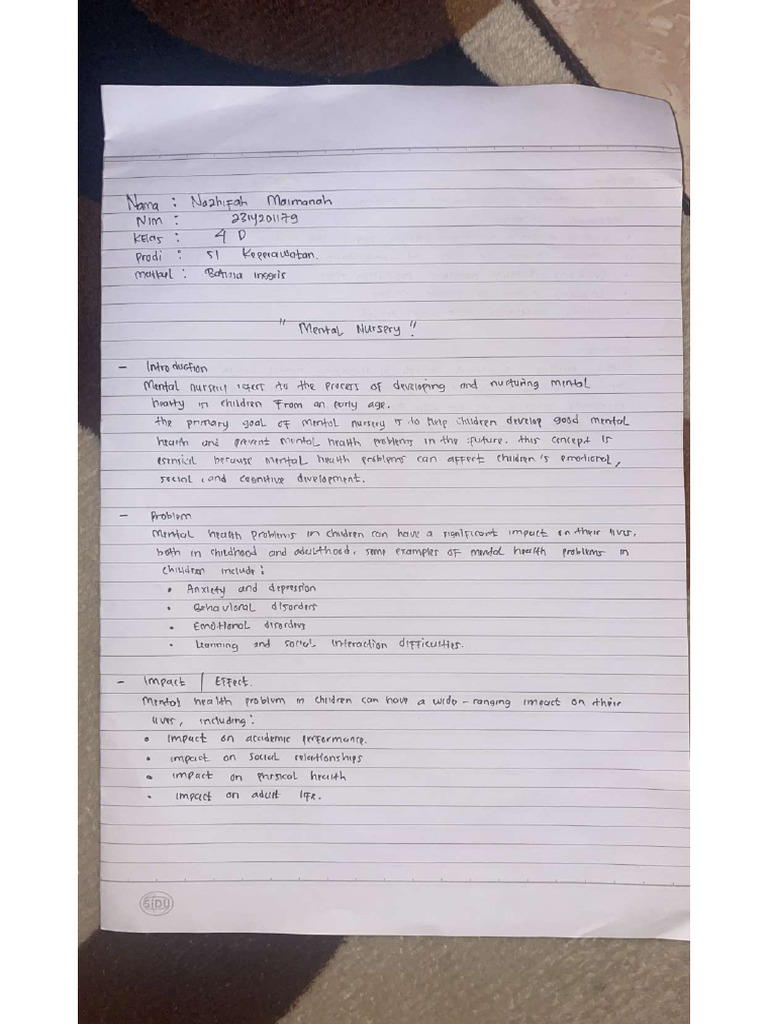 Nama : Nazhifah Maimanah
Nim : 2314201179
Kelas : 4 D
Prodi : S1 Keperawatan.
Matkul : Bahasa Inggris
" Mental Nursery "
- Introduction
Mental nursery refers to the process of developing and nurturing mental
healty in children from an early age.
the primary goal of mental nursery is to help children develop good mental
health and prevent mental health problems in the future. this concept is
esensial because mental health problems can affect children's emotional,
social, and cognitive development.
- Problem
Mental health problems in children can have a significant impact on their lives,
both in childhood and adulthood. some examples of mental health problems in
children include :
• Anxiety and depression
• Behavioral disorders
• Emotional disorders
• Learning and social interaction difficulties.
- Impact / Effect.
Mental health problem in children can have a wide-ranging impact on their
lives, including :
• impact on academic performance.
• impact on social relationships
• impact on physical health
• impact on adult life.
SIDU